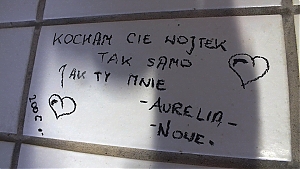 KOCHAM CIE WOJTEK
TAK SAMO
JAK TY MNIE
-AURELIA-
-NOWE.